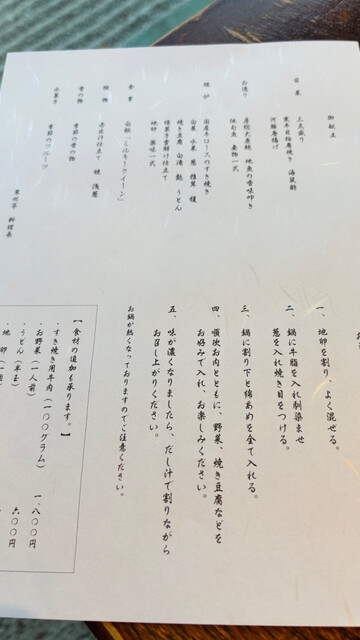 御献立
前菜
三点盛り
寒平目柚庵焼き 海鼠酢
河豚唐揚げ
お造り
焜炉
国産牛ロースのすき焼き
白菜 水菜 葱 椎茸 榎
焼き豆腐 白滝 麩 うどん
地卵 薬味一式
食事
白飯「ミルキークイーン」
椀物
赤出汁仕立て
香の物
季節の香の物
水菓子
季節のフルーツ
料理長
一、地卵を割り、よく混ぜる。
二、鍋に牛脂を入れ馴染ませ
葱を入れ焼き目をつける。
三、鍋に割り下と綿あめを全て入れる。
四、順次お肉とともに、野菜、焼き豆腐などを
お好みで入れ、お楽しみください。
五、味が濃くなりましたら、だし汁で割りながら
お召し上がりください。
お鍋が熱くなっておりますのでご注意ください。
【食材の追加も承ります。】
・すき焼き用牛肉(一〇〇グラム)
・お野菜(一人前) 一、八〇〇円
・うどん(半玉) 六〇〇円
・地卵(一個)